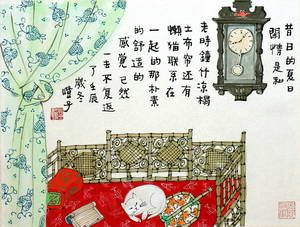 昔日的夏日
閒情是和
老時鐘什涼榻
土布帘还有
懒猫联系在
一起的那朴素
的舒适的
感覺已然
一去不复返
丁壬辰
歲冬